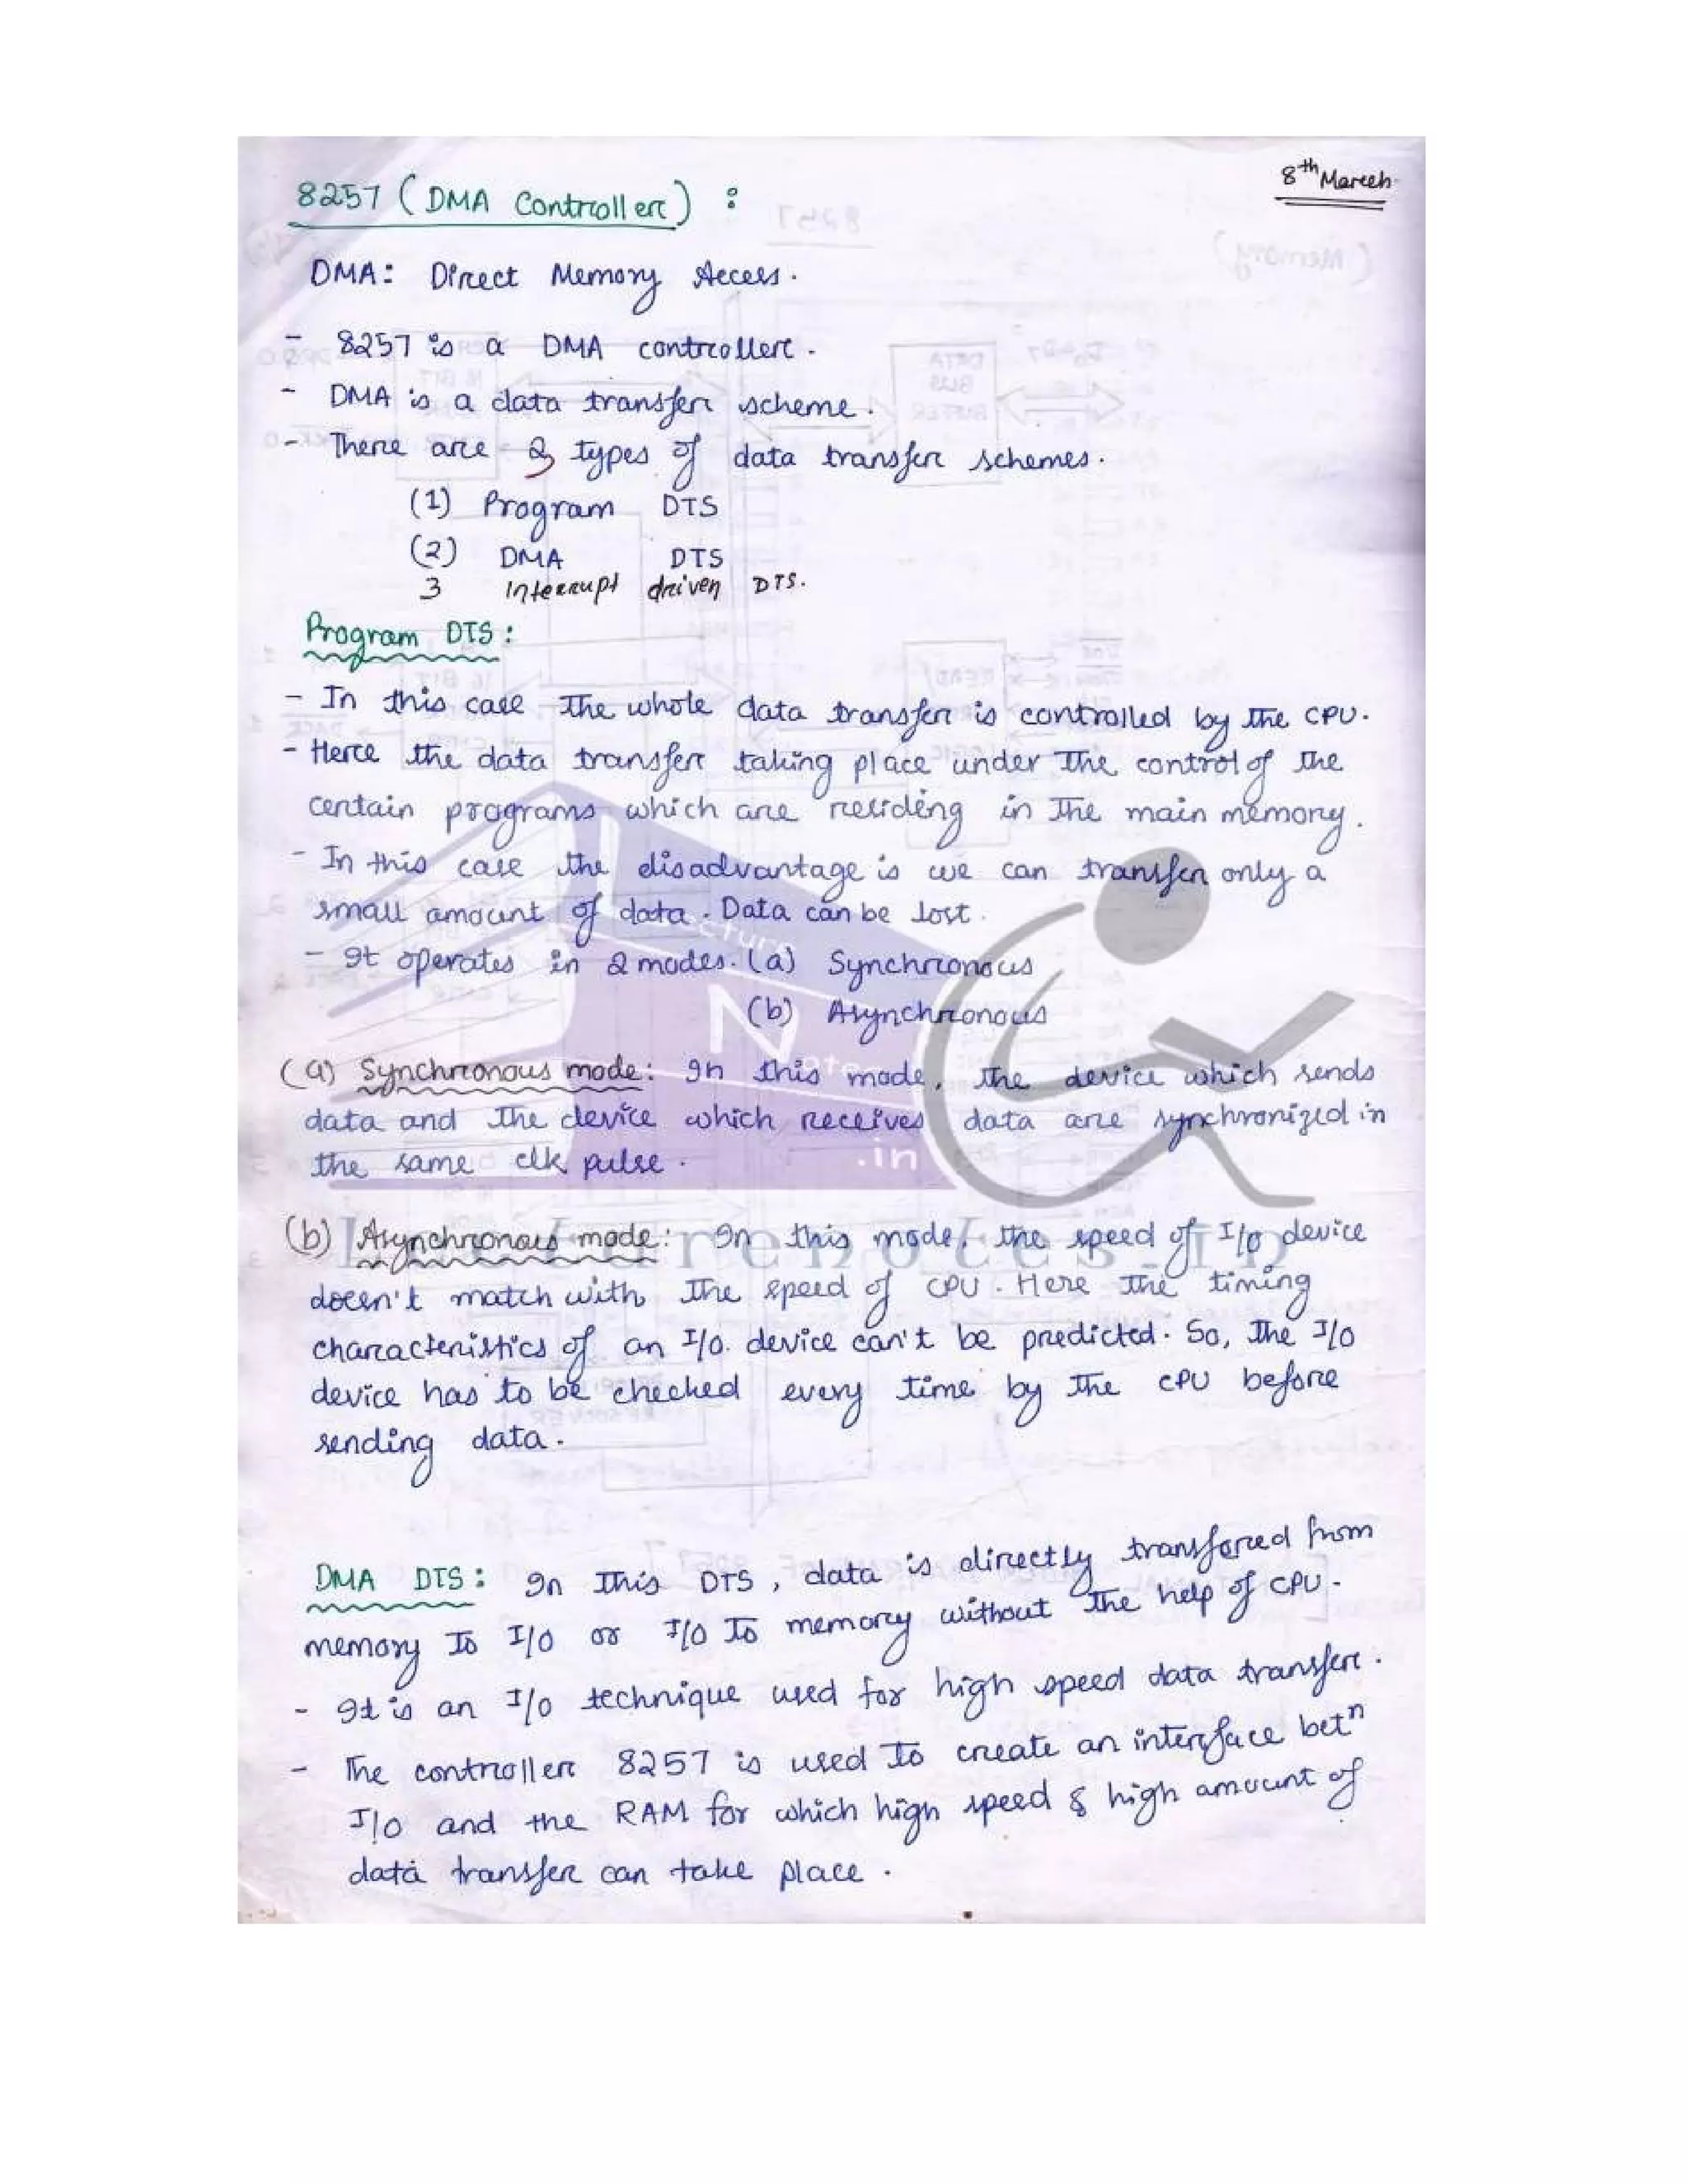 8th March
8257 (DMA Controller) :
DMA: Direct Memory Access.
- 8257 is a DMA controller.
- DMA is a data transfer scheme.
- There are 3 types of data transfer schemes.
(1) Program DTS
(2) DMA DTS
3 Interrupt driven DTS.
Program DTS:
- In this case the whole data transfer is controlled by the CPU.
- Here the data transfer taking place under the control of the
certain programs which are residing in the main memory.
- In this case the disadvantage is we can transfer only a
small amount of data. Data can be lost.
- It operates in 2 modes. (a) Synchronous
(b) Asynchronous
(a) Synchronous mode: In this mode, the device which sends
data and the device which receives data are synchronized in
the same clk pulse.
(b) Asynchronous mode: In this mode, the speed of I/O device
doesn't match with the speed of CPU. Here the timing
characteristics of an I/O device can't be predicted. So, the I/O
device has to be checked every time by the CPU before
sending data.
DMA DTS: In this DTS, data is directly transfered from
memory to I/O or I/O to memory without the help of CPU.
- It is an I/O technique used for high speed data transfer.
- The controller 8257 is used to create an interface betn
I/O and the RAM for which high speed & high amount of
data transfer can take place.
Lecture
Notes
.in
Lecturenotes.in